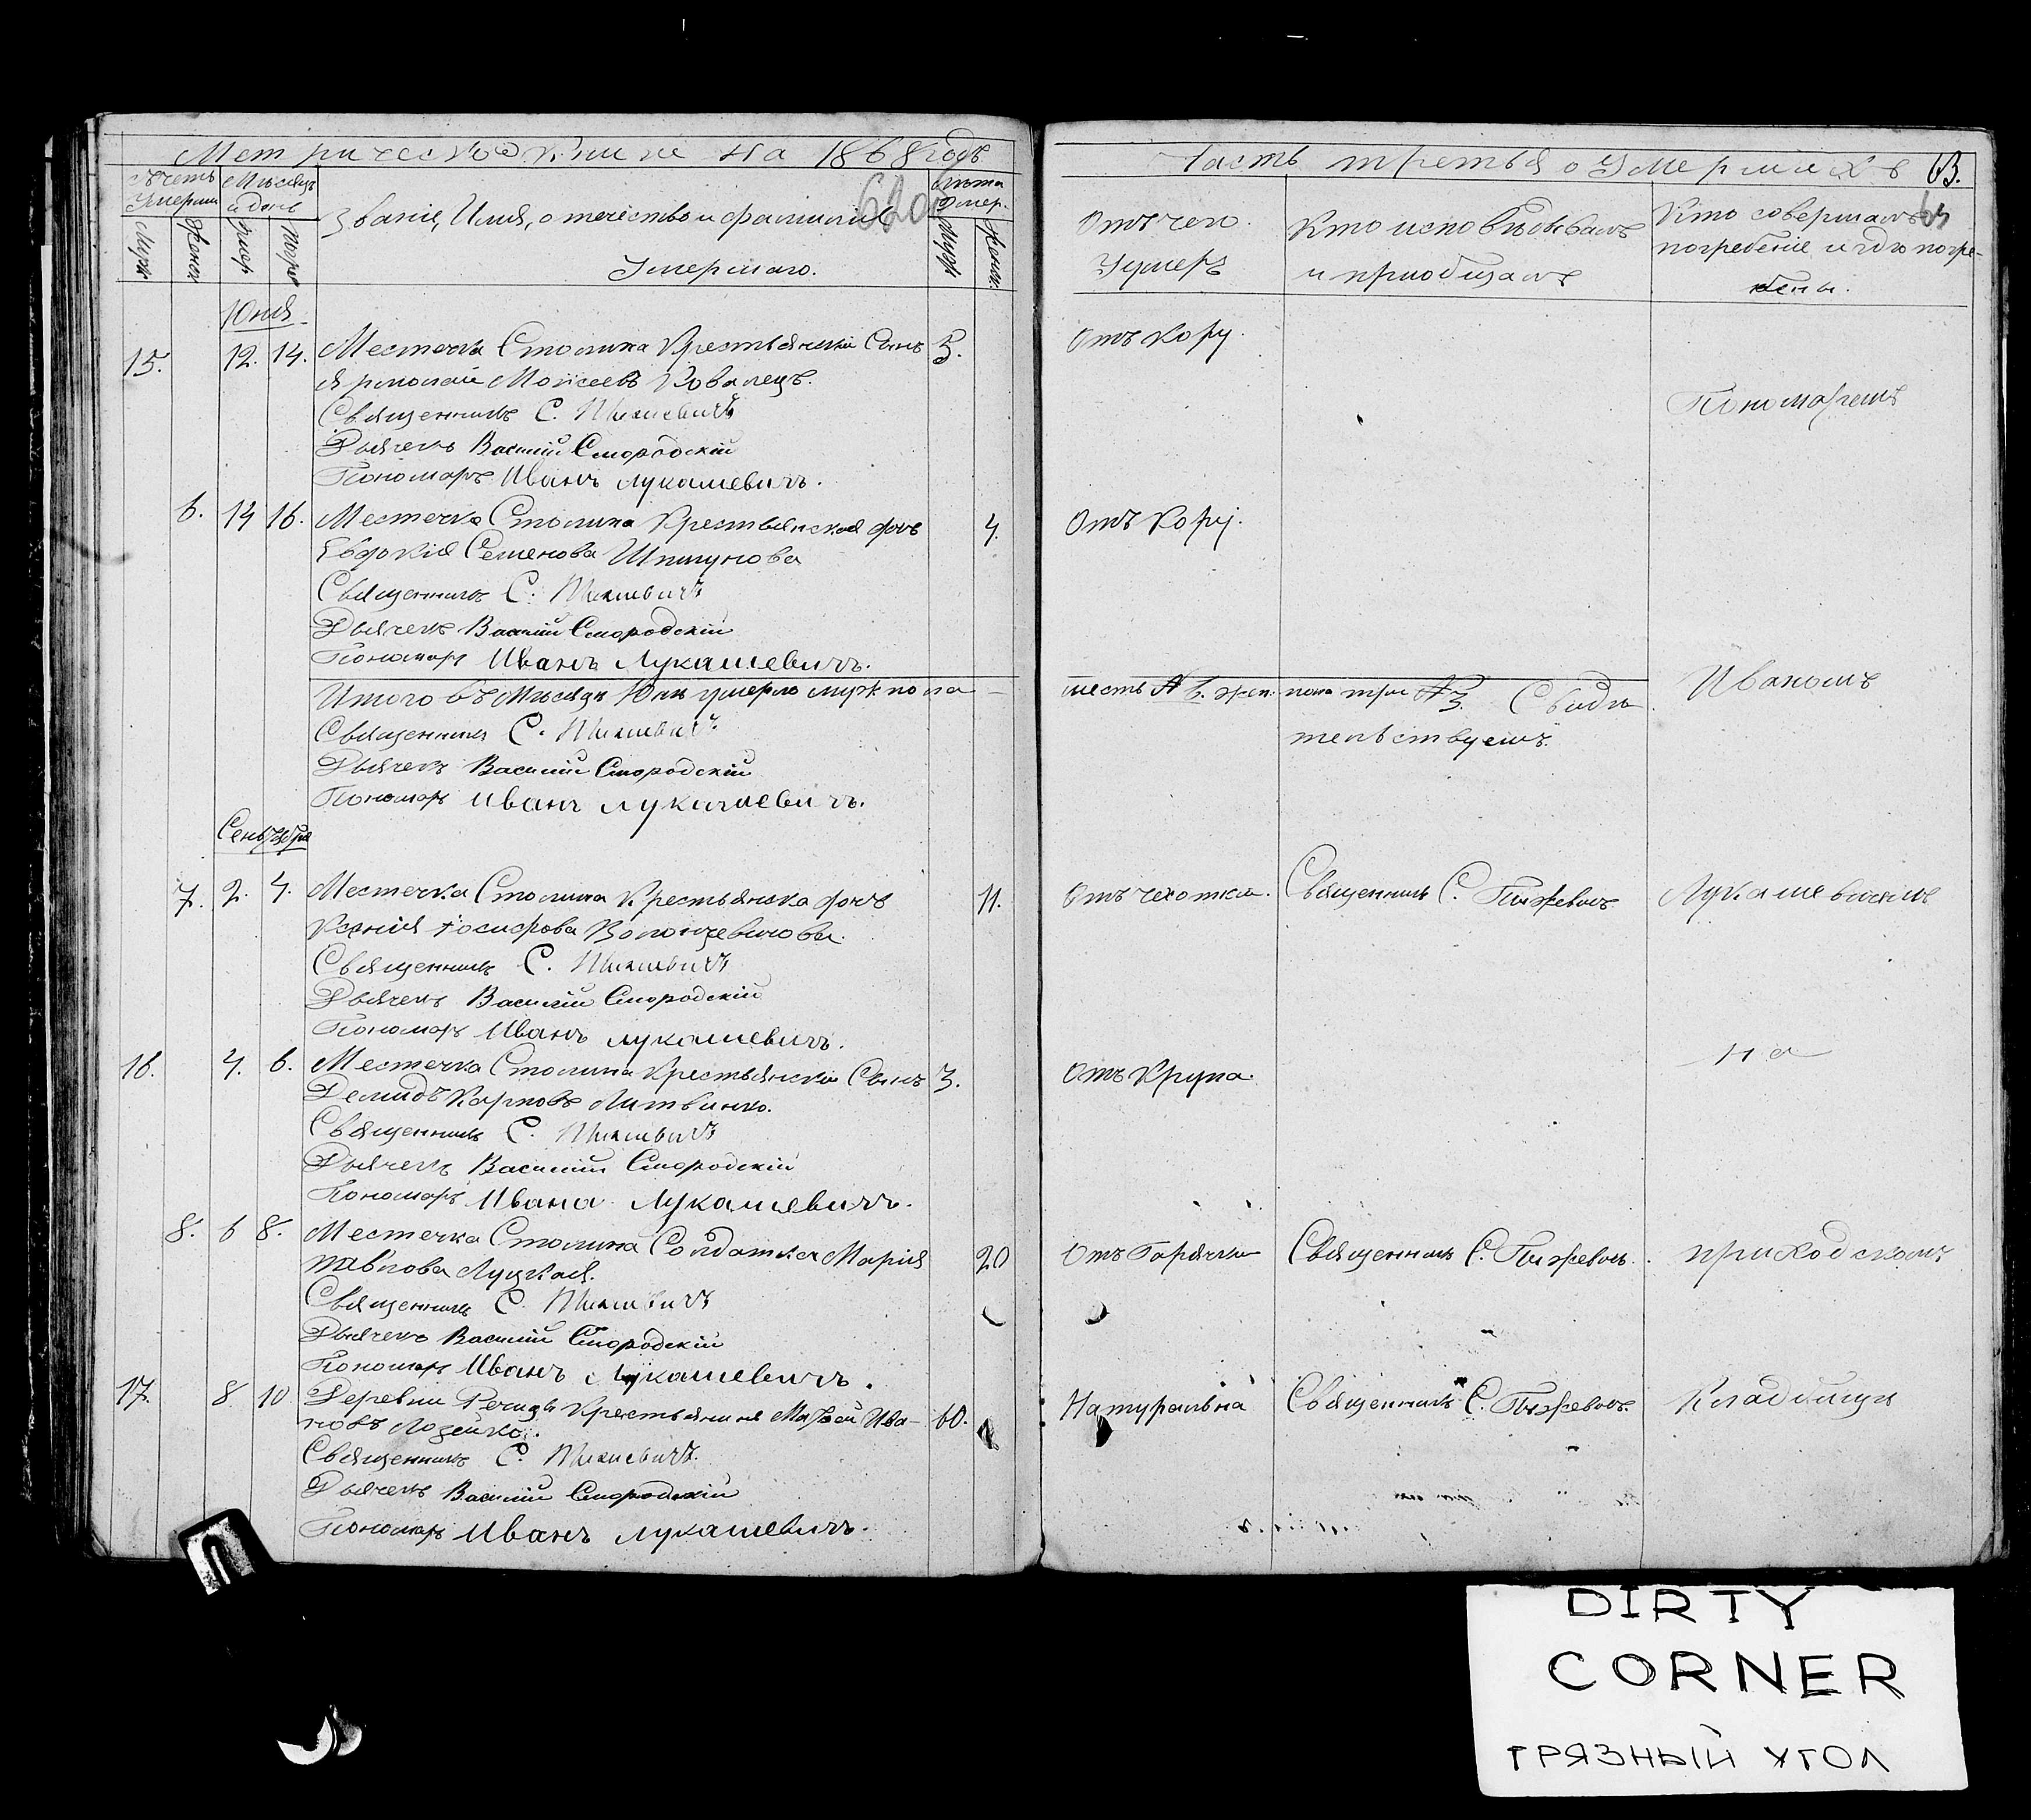 Метрической книги на 1868 годъ
Счетъ Умерши
Мѣсяцъ и день
Званіе, Имя, отчество и фамилія
Умершаго.
620
Лѣта Умер.
Муж.
Женск.
умер.
погр.
Муж.
Женс.
Юнія
15. 12. 14. Местечка Столина Крестьянскій Сынъ 3.
Ярмолай Моисеевъ Ковалецъ.
Священникъ С.
Дьячекъ Василій Смородскій
Пономарь Иванъ Лукашевичъ.
6. 14 16. Местечка Столина Крестьянская дочь 4.
Евдокія Семенова
Священникъ С.
Дьячекъ Василій Смородскій
Пономарь Иванъ Лукашевичъ.
Итого въ Мѣсяцѣ Юнѣ умерло муж. пола
Священникъ С.
Дьячекъ Василій Смородскій
Пономарь Иванъ Лукашевичъ.
Сентября
7. 2. 4. Местечка Столина Крестьянска дочь 11.
Ксенія Іосифова
Священникъ С.
Дьячекъ Василій Смородскій
Пономарь Иванъ Лукашевичъ.
16. 4. 6. Местечка Столина Крестьянскій Сынъ 3.
Демидъ Карповъ Литвинко.
Священникъ С.
Дьячекъ Василій Смородскій
Пономарь Иванъ Лукашевичъ.
8. 6 8. Местечка Столина Солдатка Марія 20
Павлова Луцкая.
Священникъ С.
Дьячекъ Василій Смородскій
Пономарь Иванъ Лукашевичъ.
17. 8 10 Деревни Речица Крестьянинъ Матѳей Ива- 60.
новъ Лозейко.
Священникъ С.
Дьячекъ Василій Смородскій
Пономарь Иванъ Лукашевичъ.
Часть третья о Умершихъ 63.
Отъ чего
Умеръ
Кто исповѣдывалъ
и пріобщалъ
Кто совершалъ
погребеніе и гдѣ погре-
бены.
Отъ Кору.
Пономаремъ
Отъ Кору.
шесть № 6. жен. пола три № 3. Свидѣ
тельствуемъ.
Иваномъ
Отъ чехотки. Священникъ С. Лукашевичемъ
Отъ Крупа. на
Отъ Горячки Священникъ С. приходскомъ
Натурально Священникъ С. Кладбищѣ
DIRTY
CORNER
ГРЯЗНЫЙ УГОЛ